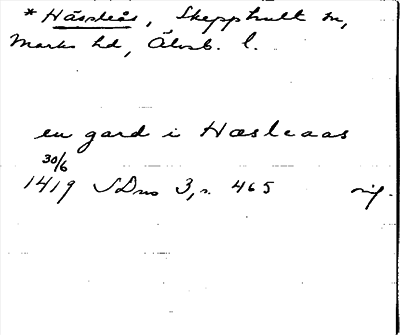 * Hässleås, Skepphult sn,
Marks hd, Älvsb. l.
en gard i Hæsleaas
30/6
1419 SDns 3, s. 465 orig.